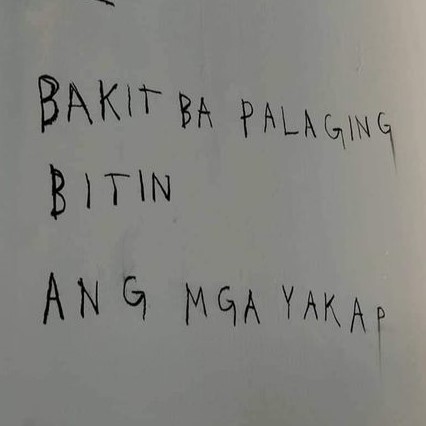 BAKIT BA PALAGING
BITIN
ANG MGA YAKAP